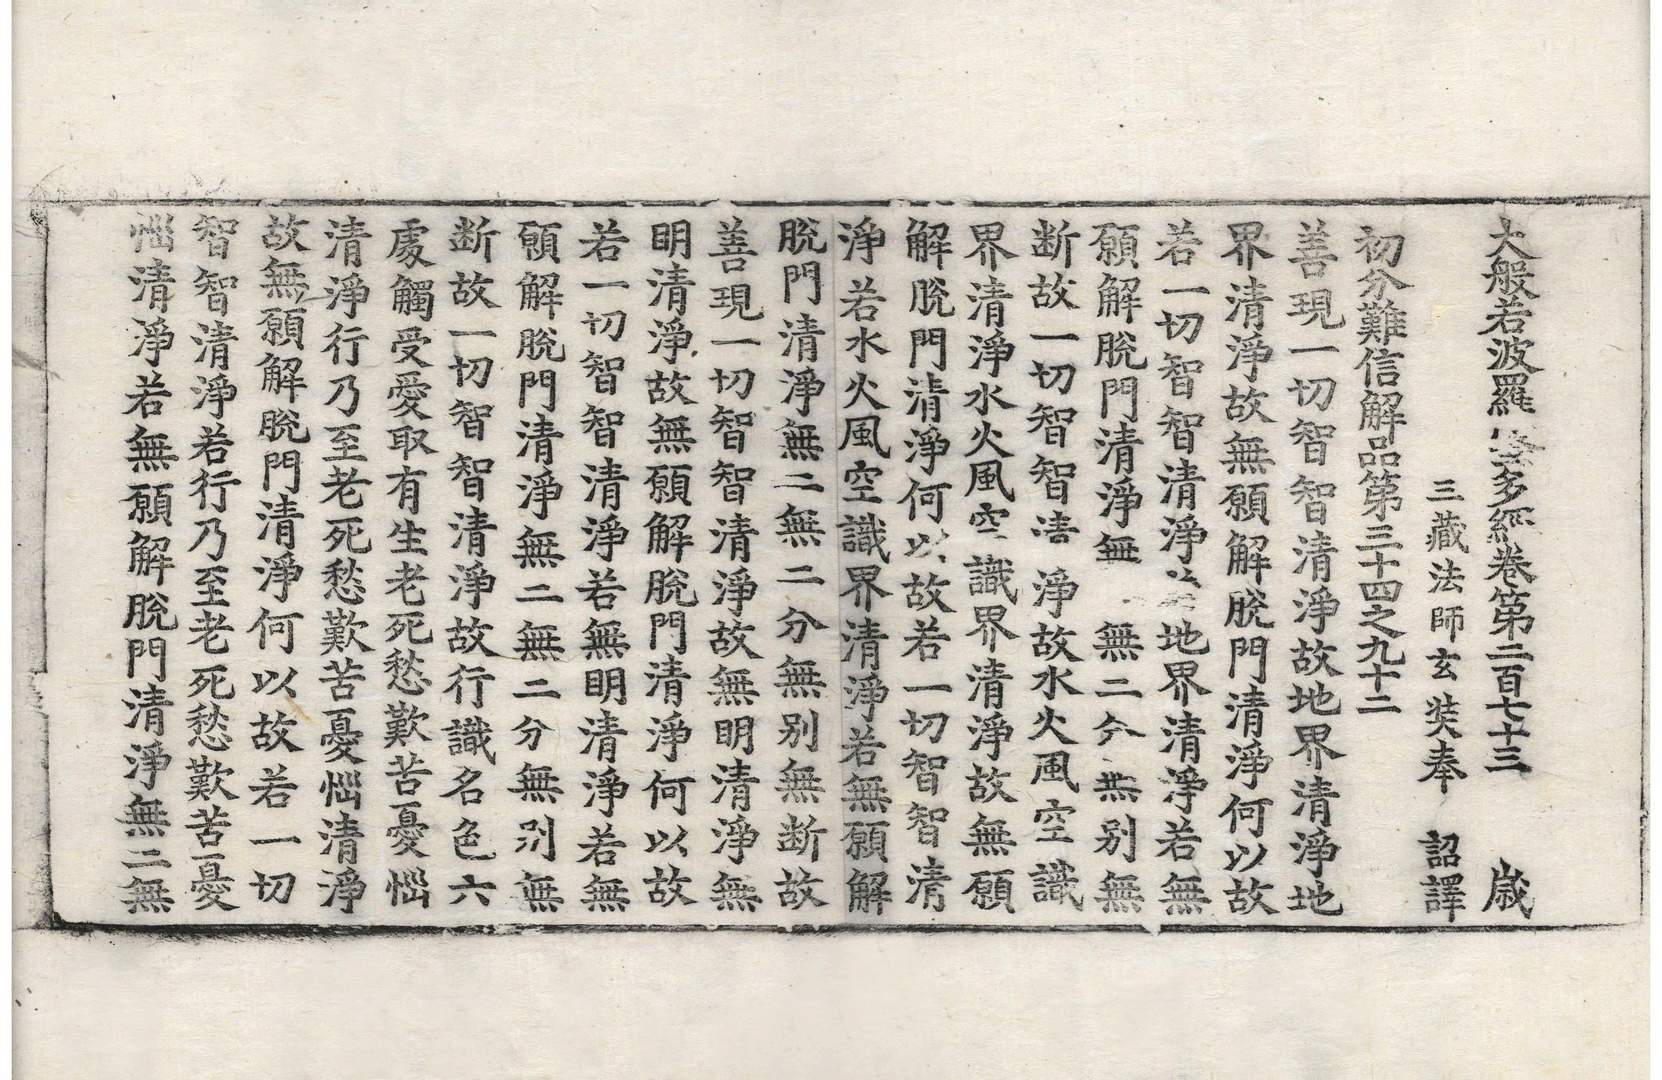 大般若波羅蜜多經卷第二百七十三 歲
三藏法師玄奘奉 詔譯
初分難信解品第三十四之九十二
善現一切智智清淨故地界清淨地
界清淨故無願解脫門清淨何以故
若一切智智清淨若地界清淨若無
願解脫門清淨無無二分無別無
断故一切智智清淨故水火風空識
界清淨水火風空識界清淨故無願
解脫門清淨何以故若一切智智清
淨若水火風空識界清淨若無願解
脫門清淨無二無二分無別無断故
善現一切智智清淨故無眀清淨無
眀清淨故無願解脫門清淨何以故
若一切智智清淨若無眀清淨若無
願解脫門清淨無二無二分無別無
断故一切智智清淨故行識名色六
處觸受愛取有生老死愁歎苦憂惱
清淨行乃至老死愁歎苦憂惱清淨
故無願解脫門清淨何以故若一切
智智清淨若行乃至老死愁歎苦憂
惱清淨若無願解脫門清淨無二無